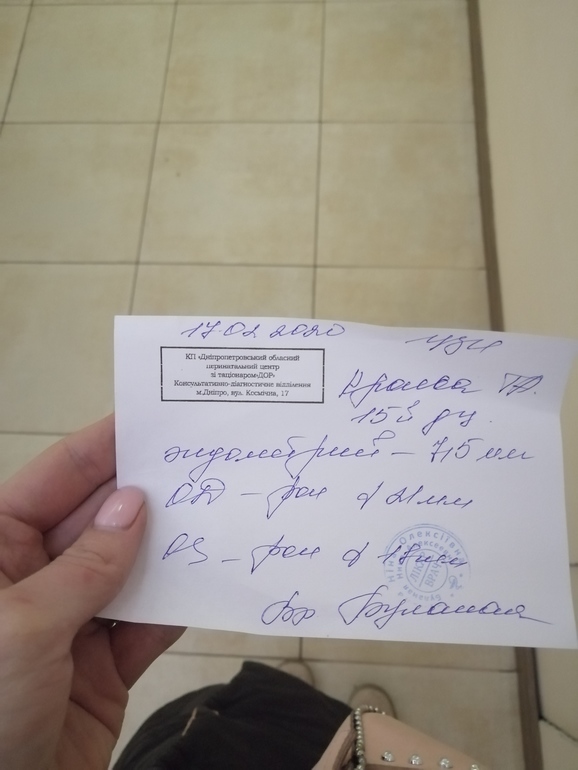 17.02 2020
УЗИ
КП «Дніпропетровський обласний
перинатальний центр
зі стаціонаром»ДОР»
Консультативно-діагностичне відділення
м.Дніпро, вул. Космічна, 17
15й дц.
эндометрий – 7,5 мм
ОД – фол d 21 мм
ОS – фол d 18 мм
Ніна Олексіївна
ЛІКАР
Вр Буланая